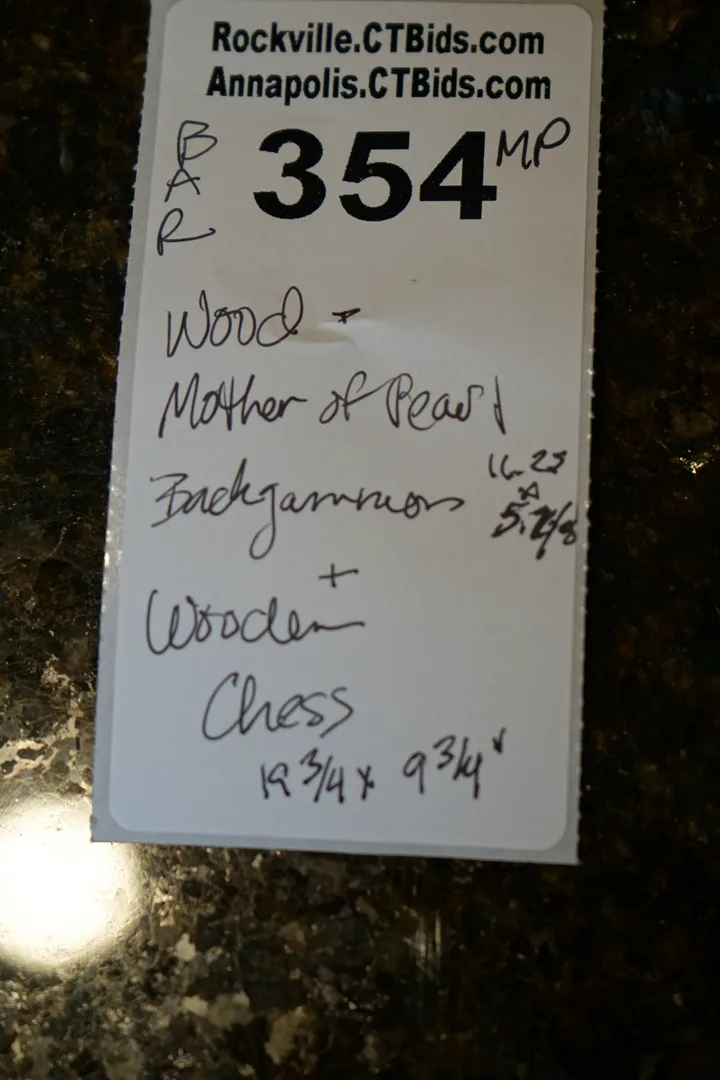 Rockville.CTBids.com
Annapolis.CTBids.com
BAR
354
MP
Wood +
Mother of Pearl
Backgammon
+
Wooden
Chess
19 3/4 x 9 3/4"